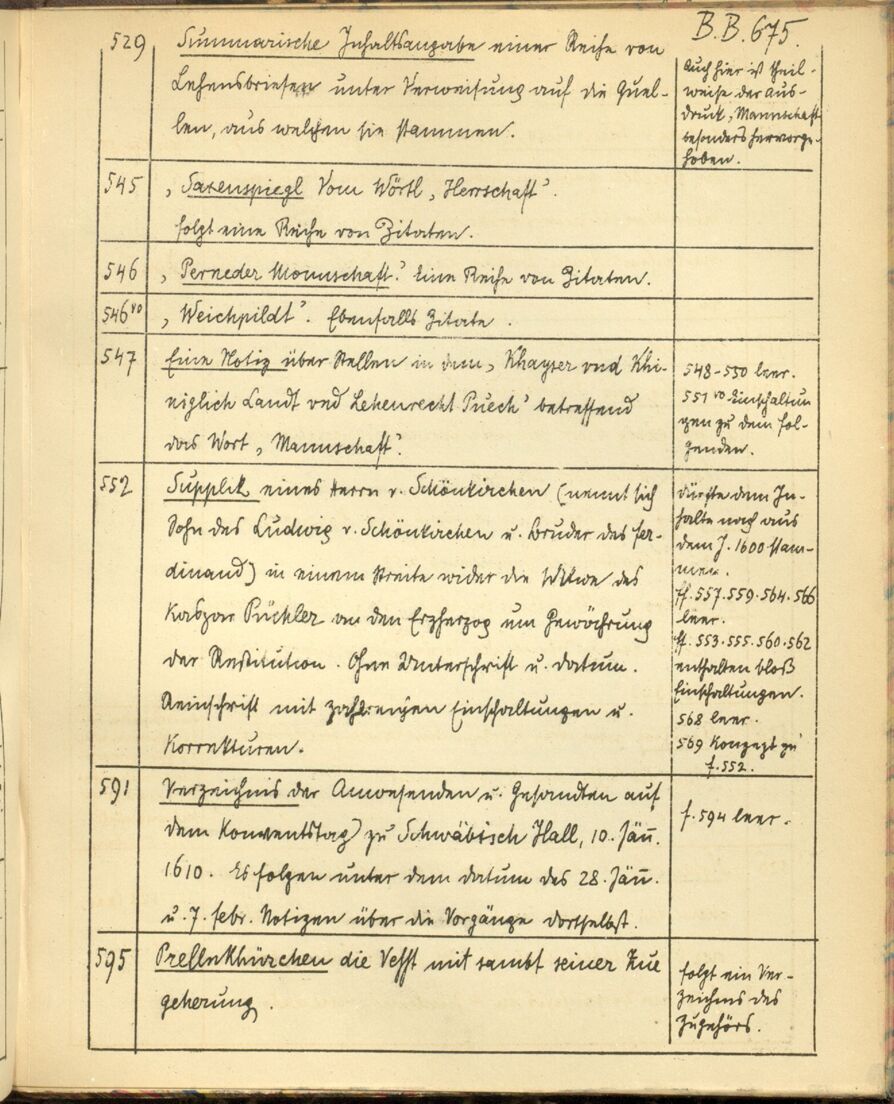 B.B. 675.
529 Summarische Inhaltsangabe einer Reihe von
Lehensbriefen unter Verweisung auf die Quel-
len, aus welchen sie stammen.
Auch hier ist theil-
weise der Aus-
druck „Mannschaft
besonders hervorge-
hoben.
545 „Saxenspiegl Vom Wörtl „Herrschaft".
folgt eine Reihe von Zitaten.
546 „Perneder Monnschaft." Eine Reihe von Zitaten.
546 vo „Weichpildt". Ebenfalls Zitate.
547 Eine Notiz über Stellen in dem „Khayser vnd Khi-
niglich Landt vnd Lehenrecht Puech" betreffend
das Wort „Mannschaft".
548-550 leer.
551 vo Einschaltun
gen zu dem fol-
genden.
552 Supplik eines Herrn v. Schönkirchen (nennt sich
Sohn des Ludwig v. Schönkirchen u. Bruder des Fer-
dinand) in einem Streite wider die Witwe des
Kaspar Püchler an den Erzherzog um Gewährung
der Restitution. Ohne Unterschrift u. Datum.
Reinschrift mit zahlreichen Einschaltungen u.
Korrekturen.
dürfte dem In-
halte nach aus
dem J. 1600 stam-
men.
ff. 557. 559. 564. 566
leer.
ff. 553. 555. 560. 562
enthalten bloß
Einschaltungen.
568 leer.
569 Konzept zu
f. 552.
591 Verzeichnis der Anwesenden u. Gesandten auf
dem Konventstag zu Schwäbisch Hall, 10. Jän.
1610. Es folgen unter dem Datum des 28. Jän.
u. 7. Febr. Notizen über die Vorgänge dortselbst.
f. 594 leer.
595 Prellnkhürchen die Vesst mit sambt seiner Zue
geherung.
folgt ein Ver-
zeichnis des
Zugehörs.